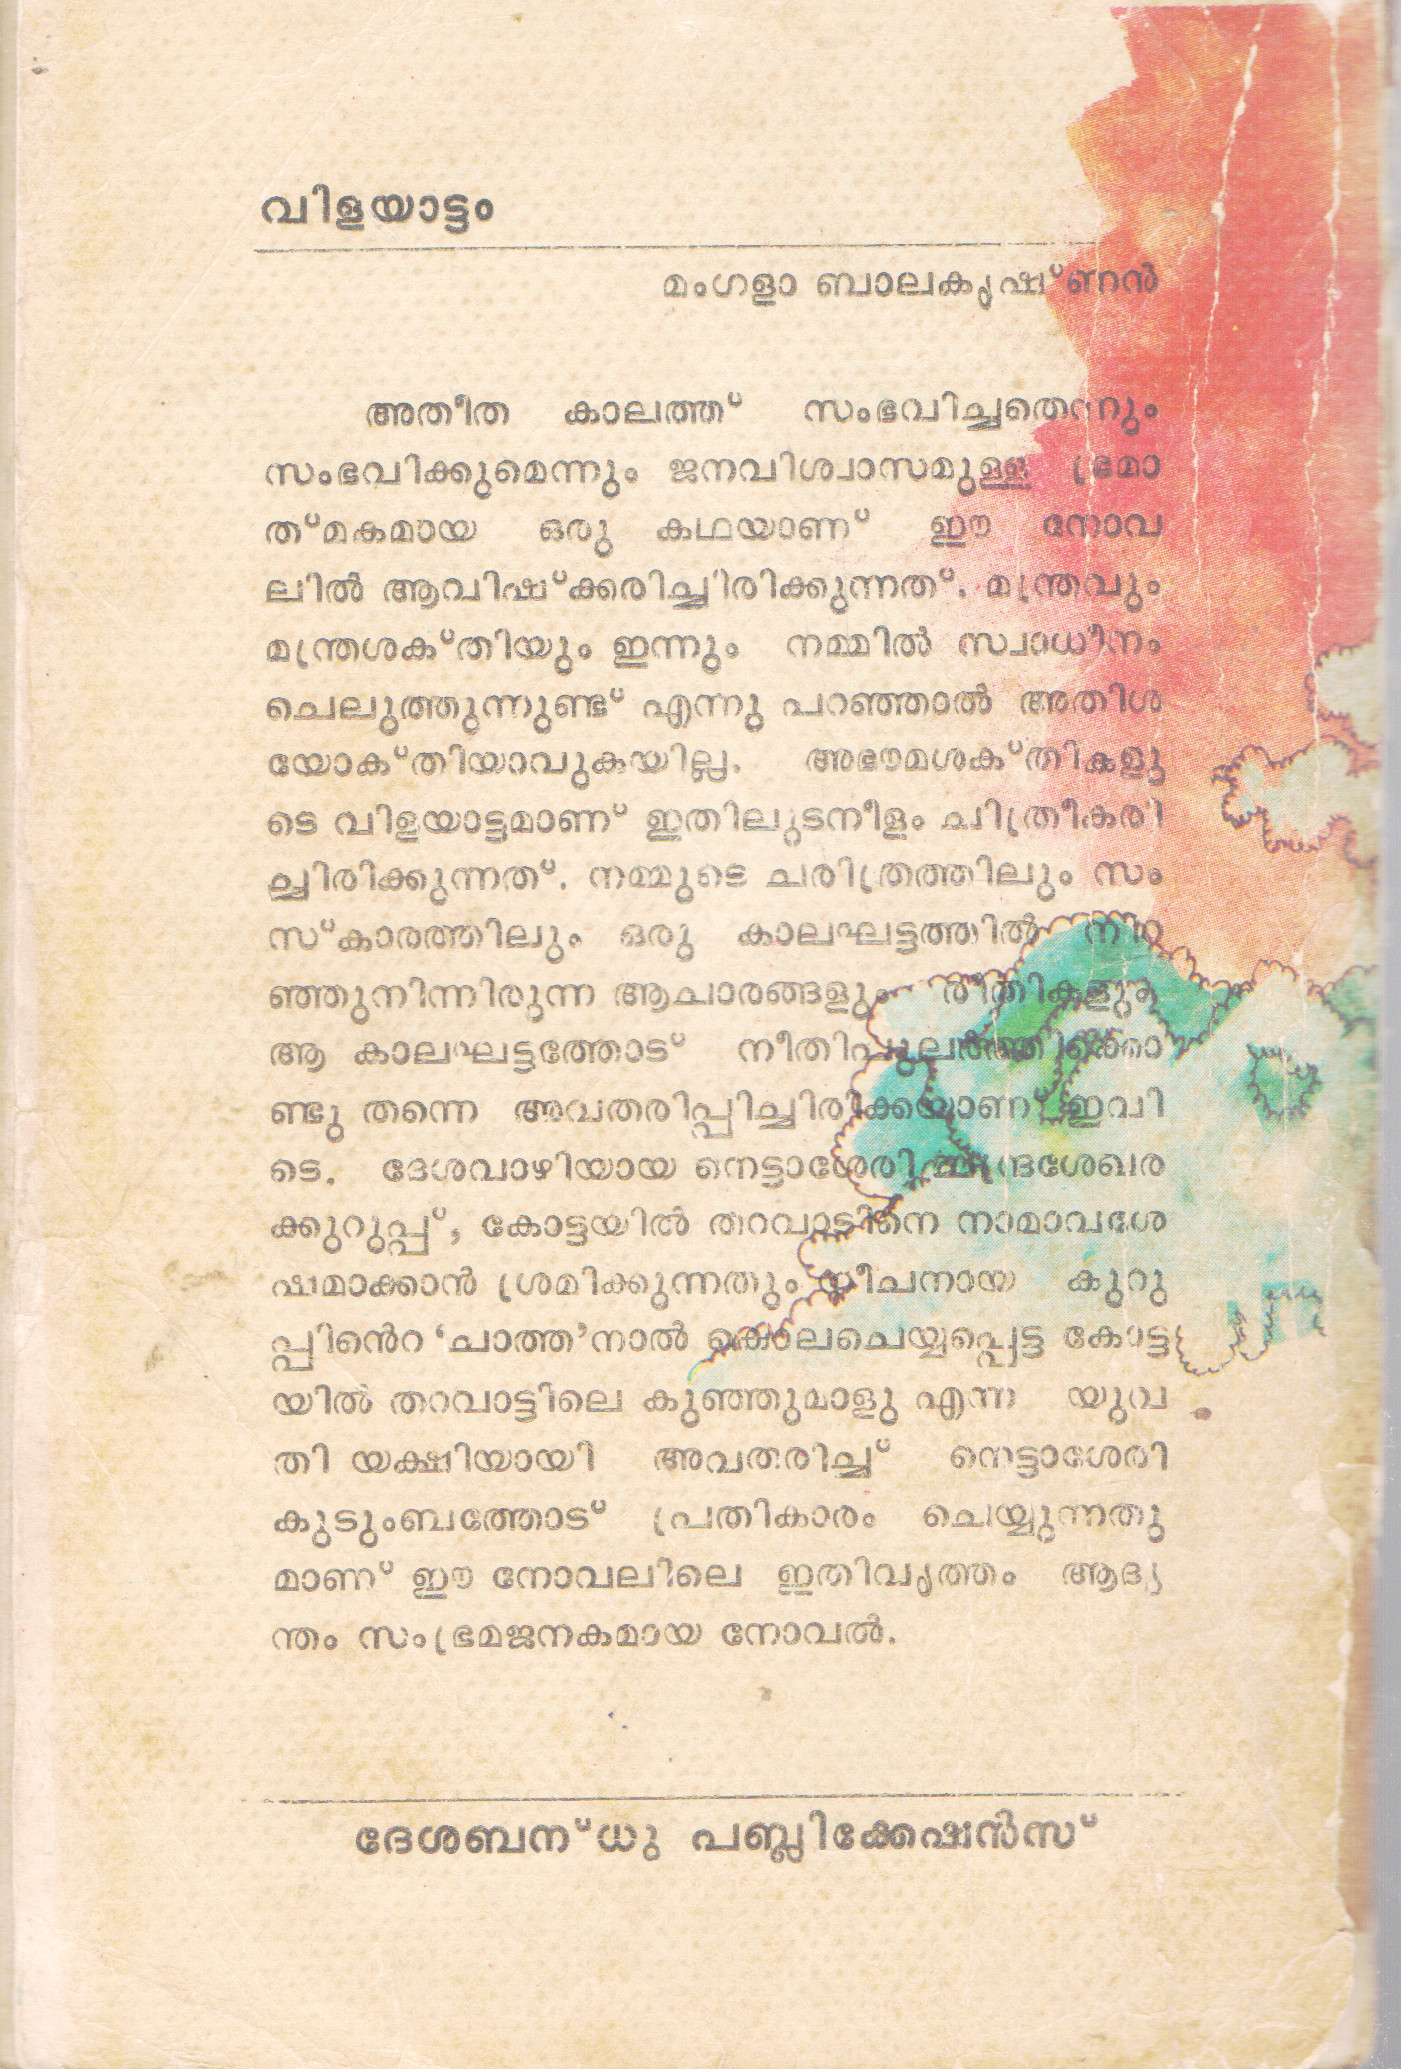 വിളയാട്ടം
മംഗളാ ബാലകൃഷ്ണൻ
അതീത കാലത്ത് സംഭവിച്ചതെന്നും
സംഭവിക്കുമെന്നും ജനവിശ്വാസമുള്ള ഭ്രമാ
ത്മകമായ ഒരു കഥയാണ് ഈ നോവ
ലിൽ ആവിഷ്ക്കരിച്ചിരിക്കുന്നത്. മന്ത്രവും
മന്ത്രശക്തിയും ഇന്നും നമ്മിൽ സ്വാധീനം
ചെലുത്തുന്നുണ്ട് എന്നു പറഞ്ഞാൽ അതിശ
യോക്തിയാവുകയില്ല. അഭൗമശക്തികളു
ടെ വിളയാട്ടമാണ് ഇതിലുടനീളം ചിത്രീകരി
ച്ചിരിക്കുന്നത്. നമ്മുടെ ചരിത്രത്തിലും സം
സ്കാരത്തിലും ഒരു കാലഘട്ടത്തിൽ നിറ
ഞ്ഞുനിന്നിരുന്ന ആചാരങ്ങളും രീതികളും
ആ കാലഘട്ടത്തോട് നീതിപുലർത്തിക്കൊ
ണ്ടു തന്നെ അവതരിപ്പിച്ചിരിക്കയാണ് ഇവി
ടെ. ദേശവാഴിയായ നെട്ടാശേരി ചന്ദ്രശേഖര
ക്കുറുപ്പ്, കോട്ടയിൽ തറവാടിനെ നാമാവശേ
ഷമാക്കാൻ ശ്രമിക്കുന്നതും നീചനായ കുറു
പ്പിൻെറ ‘ചാത്ത’നാൽ കൊലചെയ്യപ്പെട്ട കോട്ട
യിൽ തറവാട്ടിലെ കുഞ്ഞുമാളു എന്ന യുവ
തി യക്ഷിയായി അവതരിച്ച് നെട്ടാശേരി
കുടുംബത്തോട് പ്രതികാരം ചെയ്യുന്നതു
മാണ് ഈ നോവലിലെ ഇതിവൃത്തം ആദ്യ
ന്തം സംഭ്രമജനകമായ നോവൽ.
ദേശബന്ധു പബ്ലിക്കേഷൻസ്